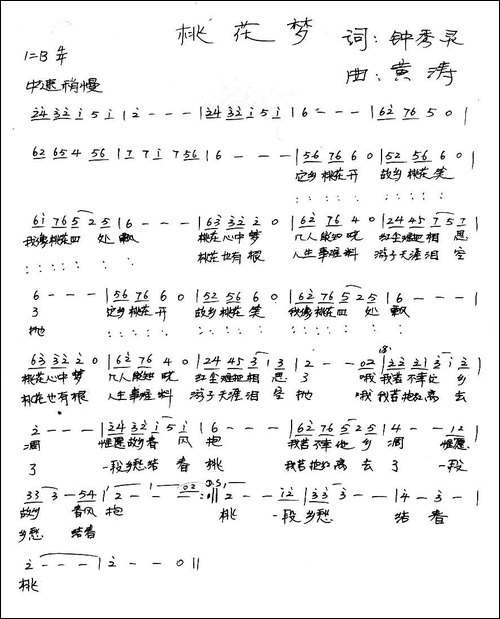 桃花梦 词:钟秀灵
1=B 4/4 曲:黄涛
中速稍慢
24 32 i 5 i | 2 - - - | 24 32 i 5 i | 6 - - - | 62 76 5 0 |
62 65 4 56 | 7 7 i 7 56 | 6 - - - | 56 76 6 0 | 52 56 6 0 |
桃花开 故乡 桃花笑
6i 76 5 25 | 6 - - - | 63 32 2 0 | 62 76 4 0 | 24 45 7 57 |
我像桃花 处飘 桃花心中梦 几人能知晓 红尘难把相思
桃花也有根 人生事难料 游子天涯泪空
6 - - - | 56 76 6 0 | 52 56 6 0 | 62 76 5 25 | 6 - - - |
了 桃花开 故乡桃花笑 我像桃花 处飘
抛
63 32 2 0 | 62 76 4 0 | 24 45 3 i 3 | 2 - - 02 | 22 21 3 i 2 |
桃花心中梦 几人能知晓 红尘难把相思 了 哦 我若不幸他乡
桃花也有根 人生事难料 游子天涯泪空 抛 哦 我若抱红离去
2 - - - | 24 32 i 5 i | 6 - - - | 62 76 5 25 | 4 - - 12 |
凋 惟愿故乡春风抱 我若不幸他乡凋 惟愿
了 一段乡愁结着桃 我若抱红离去了 一段
33 3 - 54 | 2 - - - | 2 - - 02 :|| 2 - - 12 | 33 3 - - | 4 - 3 - |
故乡 春风抱 桃 一段乡愁 结着
乡愁 结着
2 - - - | 2 - - 0 ||
桃